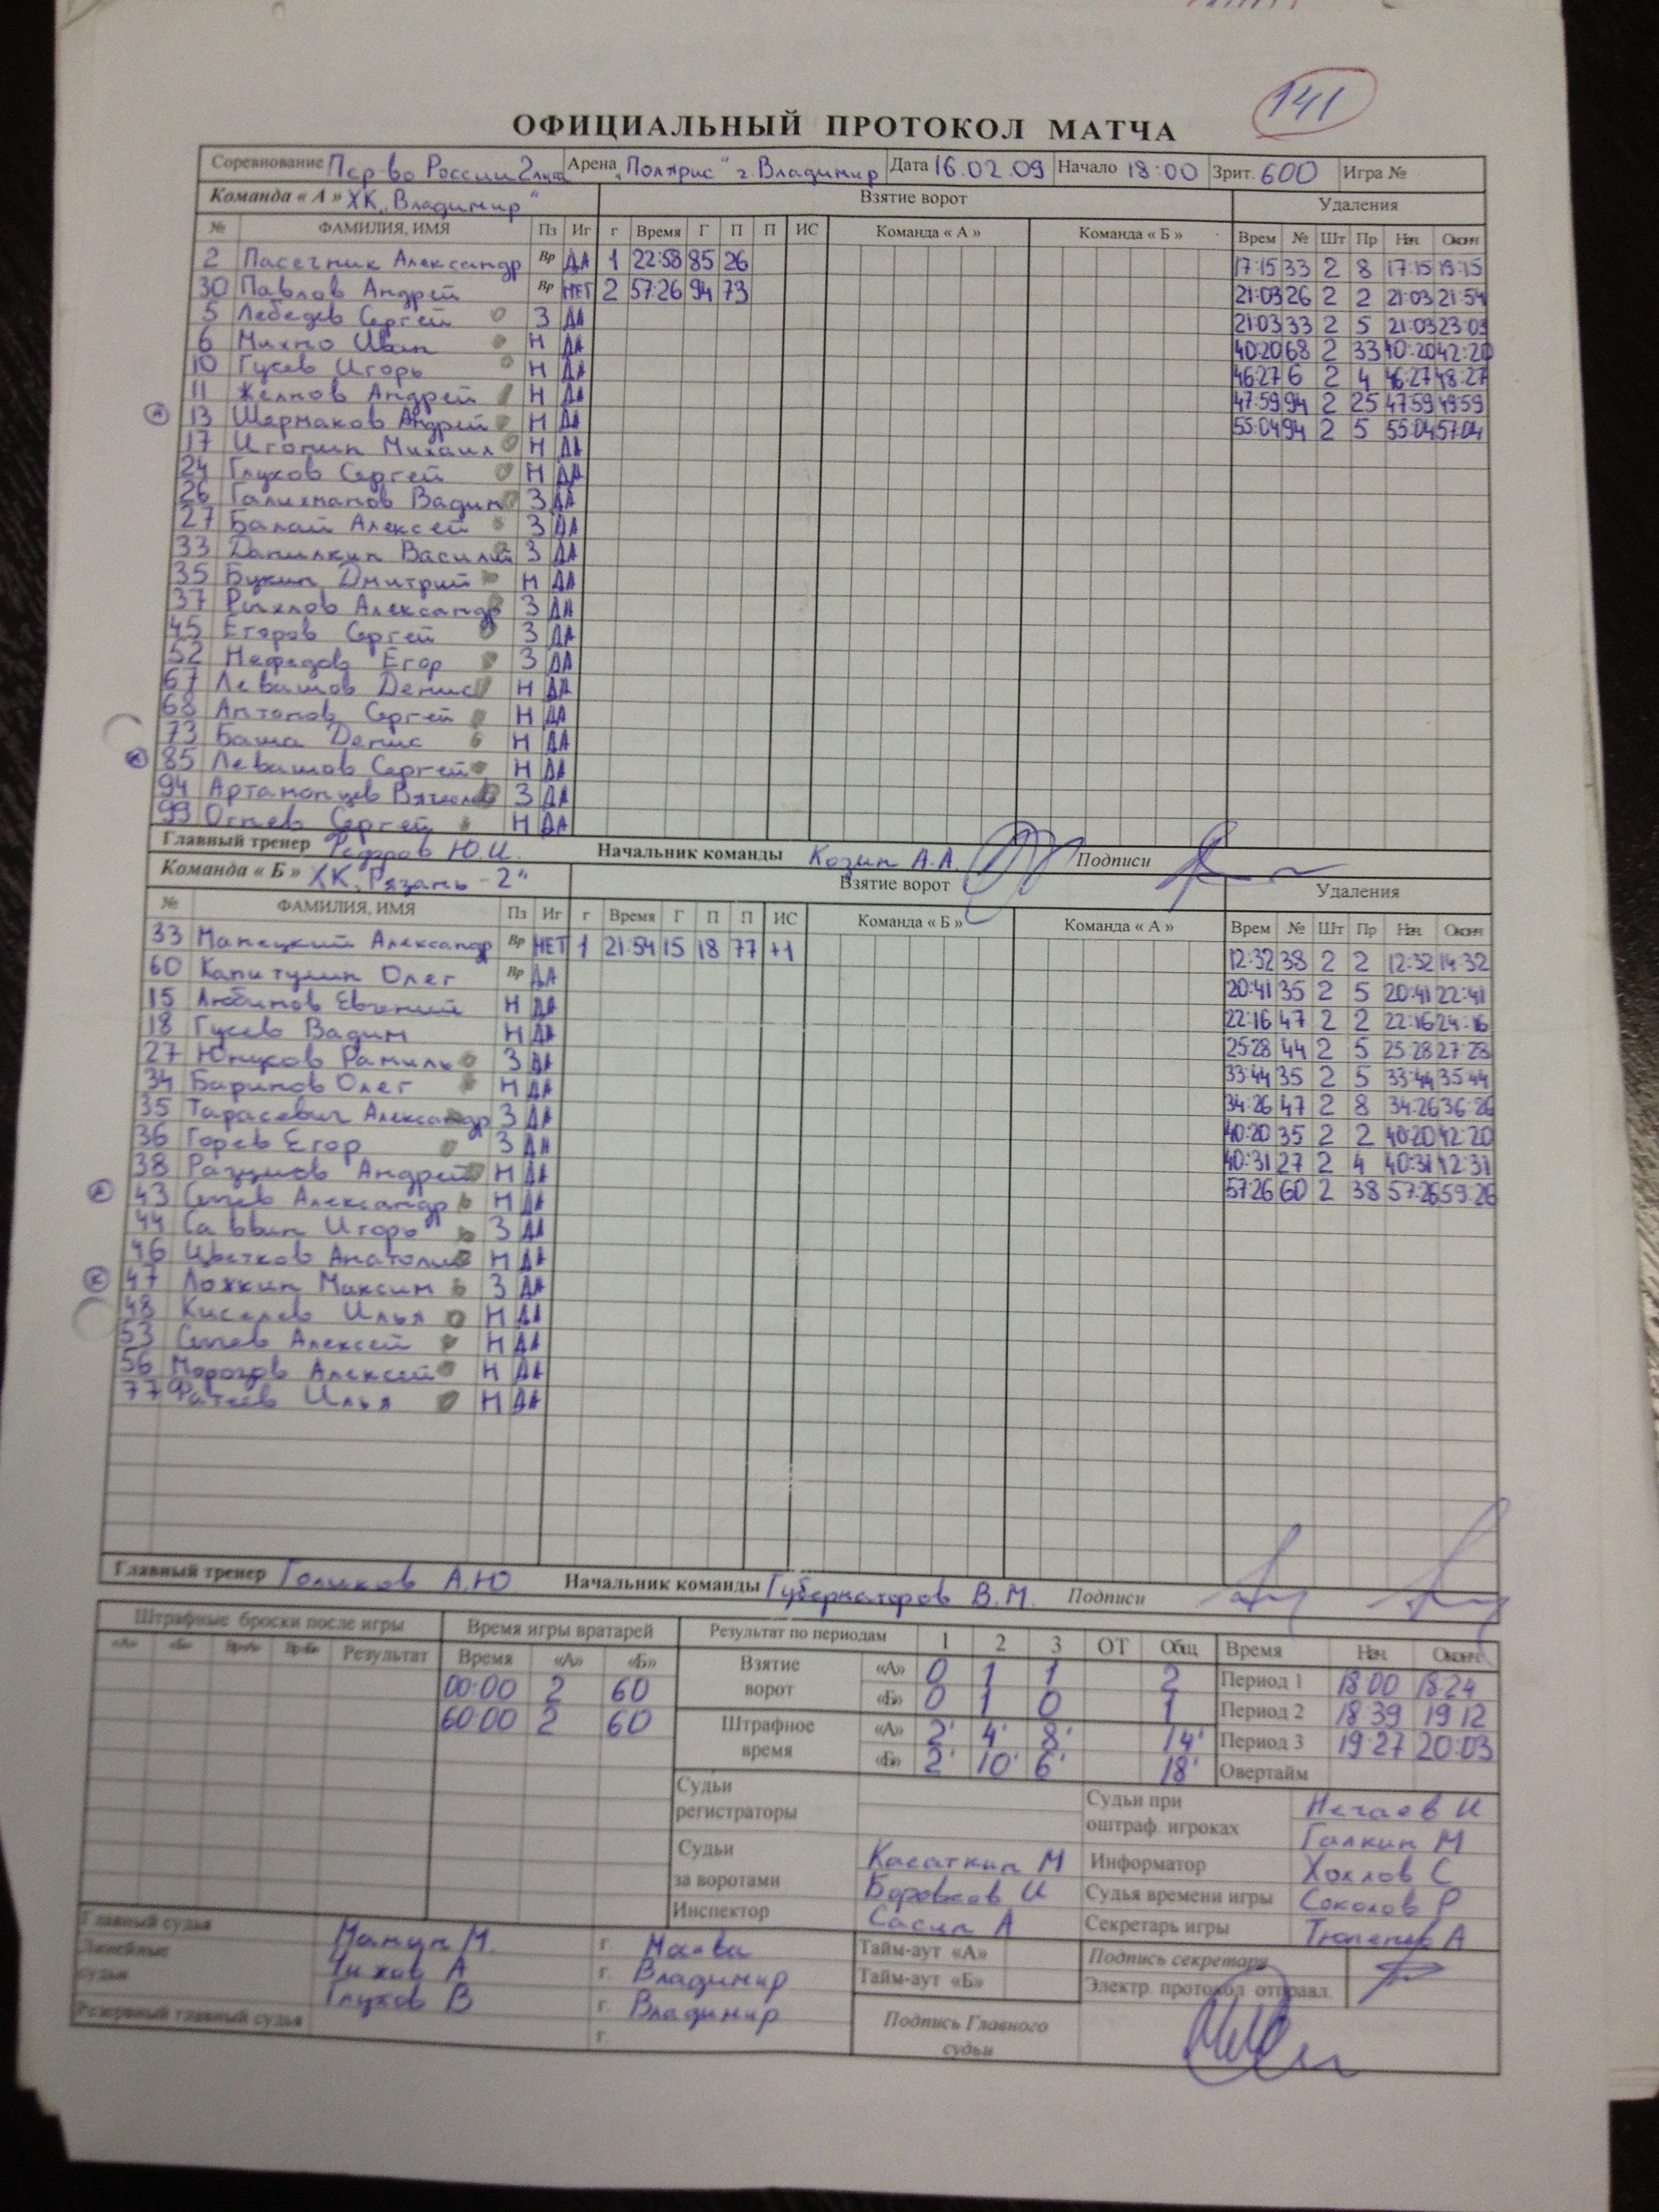 141
ОФИЦИАЛЬНЫЙ ПРОТОКОЛ МАТЧА
Соревнование Пер-во России 2 лига Арена „Полярис“ г. Владимир Дата 16.02.09 Начало 18:00 Зрит. 600 Игра №
Команда « А » ХК „Владимир“ Взятие ворот Удаления
№ ФАМИЛИЯ, ИМЯ Пз Иг г Время Г П П ИС Команда « А » Команда « Б » Врем № Шт Пр Нач. Оконч
2 Пасечник Александр Вр ДА 1 22:58 85 26 17:15 33 2 8 17:15 19:15
30 Павлов Андрей Вр НЕТ 2 57:26 94 73 21:03 26 2 2 21:03 21:54
5 Лебедев Сергей З ДА 21:03 33 2 5 21:03 23:03
6 Михно Иван Н ДА 40:20 68 2 33 40:20 42:20
10 Гусев Игорь Н ДА 46:27 6 2 4 46:27 48:27
11 Желнов Андрей Н ДА 47:59 94 2 25 47:59 49:59
13 Шермаков Андрей Н ДА 55:04 94 2 5 55:04 57:04
17 Игонин Михаил Н ДА
24 Глухов Сергей Н ДА
26 Галиханов Вадим З ДА
27 Балай Алексей З ДА
33 Данилкин Василий З ДА
35 Букин Дмитрий Н ДА
37 Рыхлов Александр З ДА
45 Егоров Сергей З ДА
52 Нефедов Егор З ДА
67 Левашов Денис Н ДА
68 Антонов Сергей Н ДА
73 Баша Денис Н ДА
85 Левашов Сергей Н ДА
94 Артамонцев Вячеслав З ДА
99 Огнев Сергей Н ДА
Главный тренер Федоров Ю.И. Начальник команды Козин А.А. Подписи
Команда « Б » ХК „Рязань-2“ Взятие ворот Удаления
№ ФАМИЛИЯ, ИМЯ Пз Иг г Время Г П П ИС Команда « Б » Команда « А » Врем № Шт Пр Нач. Оконч
33 Манецкий Александр Вр НЕТ 1 21:54 15 18 77 +1 12:32 38 2 2 12:32 14:32
60 Капитулин Олег Вр ДА 20:41 35 2 5 20:41 22:41
15 Любимов Евгений Н ДА 22:16 47 2 2 22:16 24:16
18 Гусев Вадим Н ДА 25:28 44 2 5 25:28 27:28
27 Юнусов Рамиль З ДА 33:44 35 2 5 33:44 35:44
34 Баринов Олег Н ДА 34:26 47 2 8 34:26 36:26
35 Тарасевич Александр З ДА 40:20 35 2 2 40:20 42:20
36 Горев Егор З ДА 40:31 27 2 4 40:31 42:31
38 Разумов Андрей Н ДА 57:26 60 2 38 57:26 59:26
43 Александр Н ДА
44 Саввин Игорь З ДА
46 Цветков Анатолий Н ДА
47 Ложкин Максим З ДА
48 Киселев Илья Н ДА
53 Алексей Н ДА
56 Морозов Алексей Н ДА
77 Фатеев Илья Н ДА
Главный тренер Голиков А.Ю Начальник команды Губернаторов В.М. Подписи
Штрафные броски после игры Время игры вратарей Результат по периодам 1 2 3 ОТ Общ Время Нач. Оконч
«А» «Б» Вр«А» Вр«Б» Результат Время «А» «Б»
Взятие ворот «А» 0 1 1 2 Период 1 18:00 18:24
00:00 2 60 «Б» 0 1 0 1 Период 2 18:39 19:12
60:00 2 60 Штрафное время «А» 2' 4' 8' 14' Период 3 19:27 20:03
«Б» 2' 10' 6' 18' Овертайм
Судьи регистраторы Судьи при оштраф. игроках Нечаев И
Галкин М
Судьи за воротами Касаткин М Информатор Хохлов С
Боровков И Судья времени игры Соколов Р
Инспектор Сасин А Секретарь игры А
Главный судья М. г. Москва Тайм-аут «А» Подпись секретаря
Линейные судьи Чихов А г. Владимир Тайм-аут «Б» Электр. протокол отправл.
Глухов В г. Владимир
Резервный главный судья г. Подпись Главного судьи